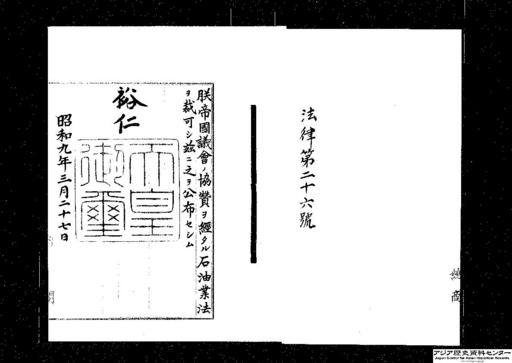 法律第二十六號
朕帝國議會ノ協贊ヲ經タル石油業法
ヲ裁可シ茲ニ之ヲ公布セシム
裕仁
天皇御璽
昭和九年三月二十七日
アジア歴史資料センター
Japan Center for Asian Historical Records